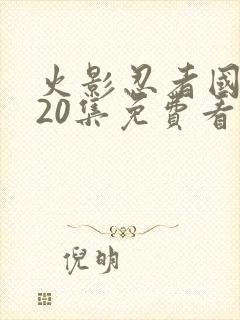 火影忍者國
20集免費看
倪明